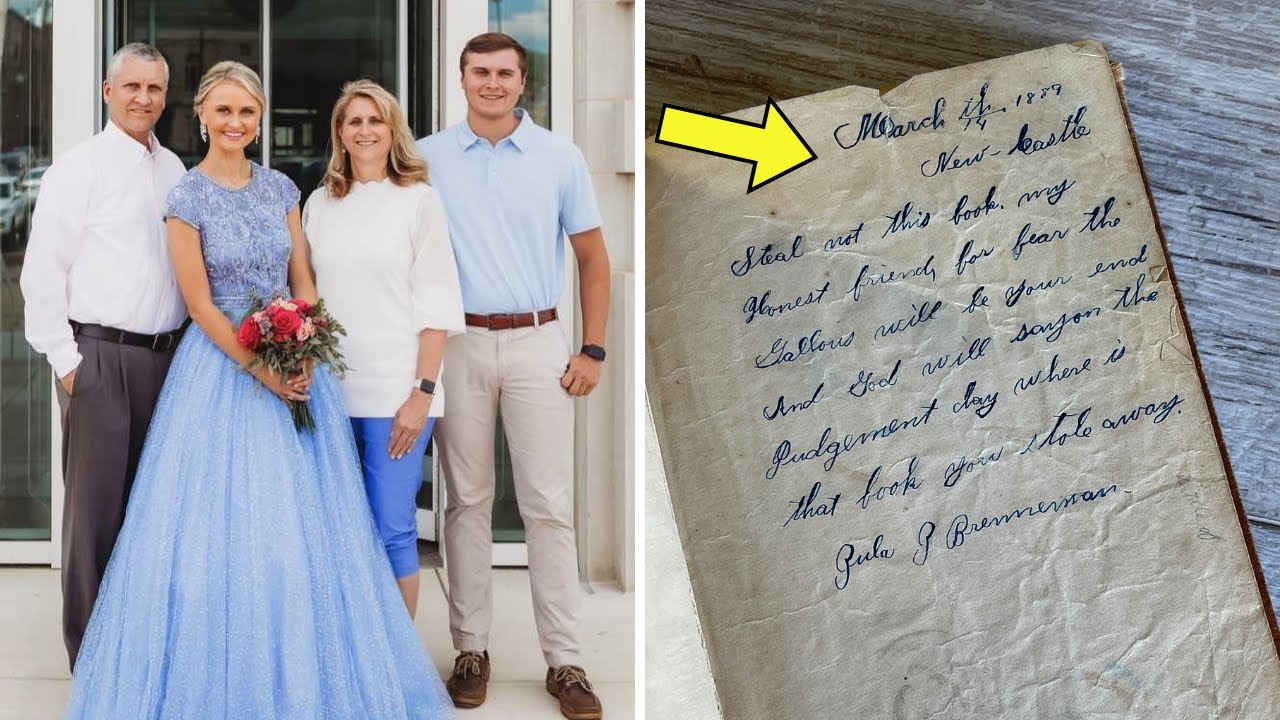 March 4th 1889
New-Castle
Steal not this book. my
Honest friend, for fear the
Gallows will be your end
And God will say on the
Judgement day where is
that book you stole away.
P Brenneman.